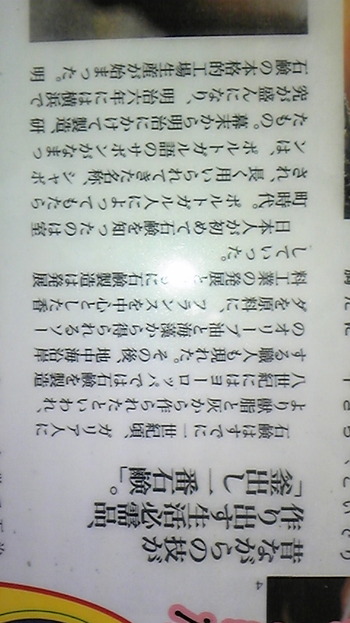 昔ながらの技が
作り出す生活必需品、
「釜出し一番石鹸」。
石鹸はすでに一世紀頃、ガリア人に
より獣脂と灰から作られたといわれ、
八世紀にはヨーロッパでは石鹸を製造
する職人も現れた。その後、地中海沿岸
のオリーブ油と海藻から得られるソー
ダを原料に、フランスを中心とした香
料工業の発展とともに石鹸製造は発展
していった。
日本人が初めて石鹸を知ったのは室
町時代。ポルトガル人によってもたら
され、長く用いられてきた名称、シャボ
ンは、ポルトガル語のサボンがなまっ
たもの。幕末から明治にかけて製造、研
究が盛んになり、明治六年には横浜で
石鹸の本格的工場生産が始まった。明